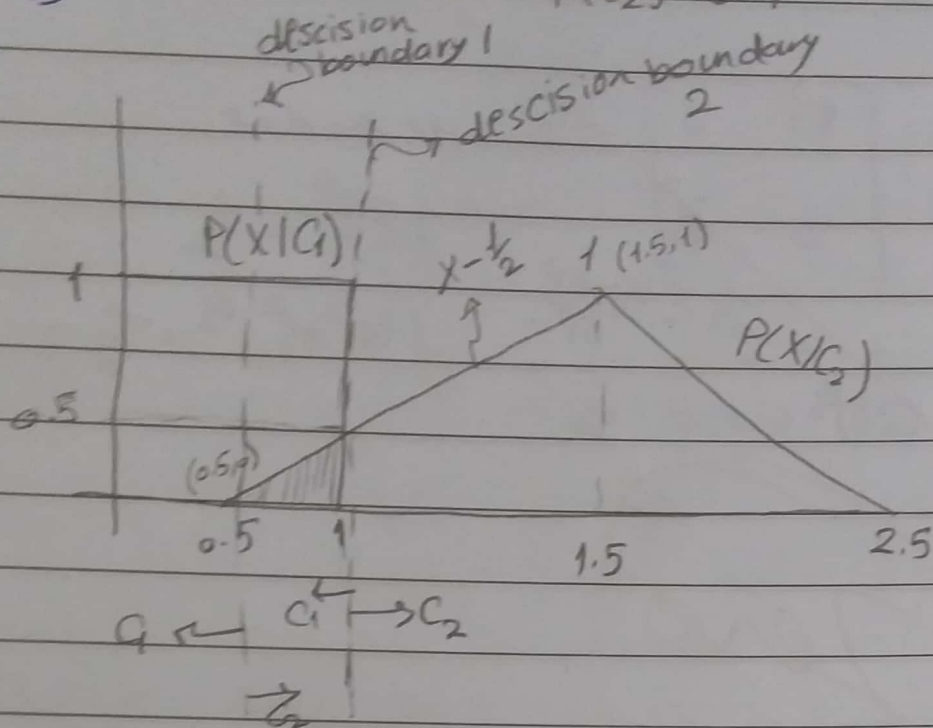 descision
boundary 1
descision boundary
2
P(X|C1)
x-1/2
1 (1.5,1)
1
P(X/C2)
0.5
(0.5,0)
0.5
1
1.5
2.5
C1 ←
C1 ←
→ C2
→